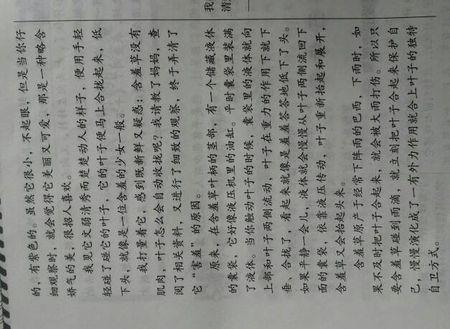 我
清
的、有紫色的。虽然它很小，不起眼，但是当你仔
细观察时，就会觉得它美丽又可爱，那是一种略含
娇气的美，很招人喜欢。
我见它文弱清秀而楚楚动人的样子，便用手轻
轻碰了碰它的叶子，它的叶子便马上合拢起来，低
下头，就像是一位含羞的少女一般。
我打量着它，感到既新鲜又疑惑：含羞草没有
肌肉，叶子怎么会自动收拢呢？我请教了妈妈，查
阅了相关资料，又进行了细致的观察，终于弄清了
它“害羞”的原因。
原来，在含羞草叶柄的茎部，有一个储藏液体
的囊袋，它好像液压机里的油缸，平时囊袋里装满
了液体。当你触动叶子的时候，囊袋里的液体就向
上部和叶子两侧流动，叶子在重力的作用下就下
垂、合拢了，看起来就像是羞羞答答地低下了头。
如果平静一会儿，液体就会慢慢从叶子两侧流回下
面的囊袋，依靠液压传动，叶子重新抬起和展开，
含羞草又会抬起头来。
含羞草原产于经常下阵雨的巴西，下雨时，如
果不及时把叶子合起来，就会被大雨打伤。所以只
要含羞草碰到雨滴，就立刻把叶子合起来保护自
己，慢慢演化成了一有外力作用就合上叶子的独特
自卫方式。